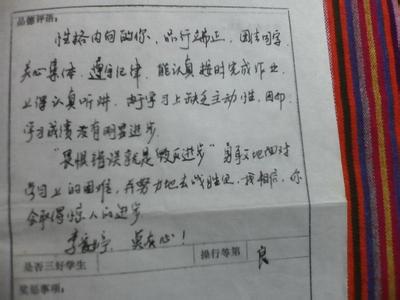 品德评语:
性格内向的你,品行端正,团结同学,
关心集体,遵守纪律,能认真按时完成作业,
上课认真听讲,由于学习上缺乏主动性,因而
学习成绩没有明显进步。
"畏惧错误就是毁灭进步"勇敢地面对
学习上的困难,并努力地去战胜它,我相信,你
会取得惊人的进步。
李 真有心!
是否三好学生
操行等第
良
奖惩事项: